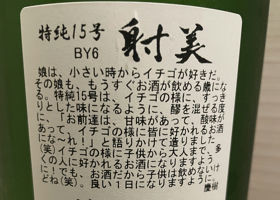 特純15号
BY6
射美
娘は、小さい時からイチゴが好きだ。
その娘も、もうすぐお酒が飲める歳になる。
特純15号は、イチゴの様に、すっき
りとした味になるように、醪を混ぜ酸度
「お前達は、甘味が皆に好かれるお酒
あって、イチゴの様に
なれー！」と語りかけて造りました
(笑)イチゴの様に子供から大人まで、多
くの人に好かれるお酒になりますよう
どね(笑)。良い1日になりますように。
慶樹